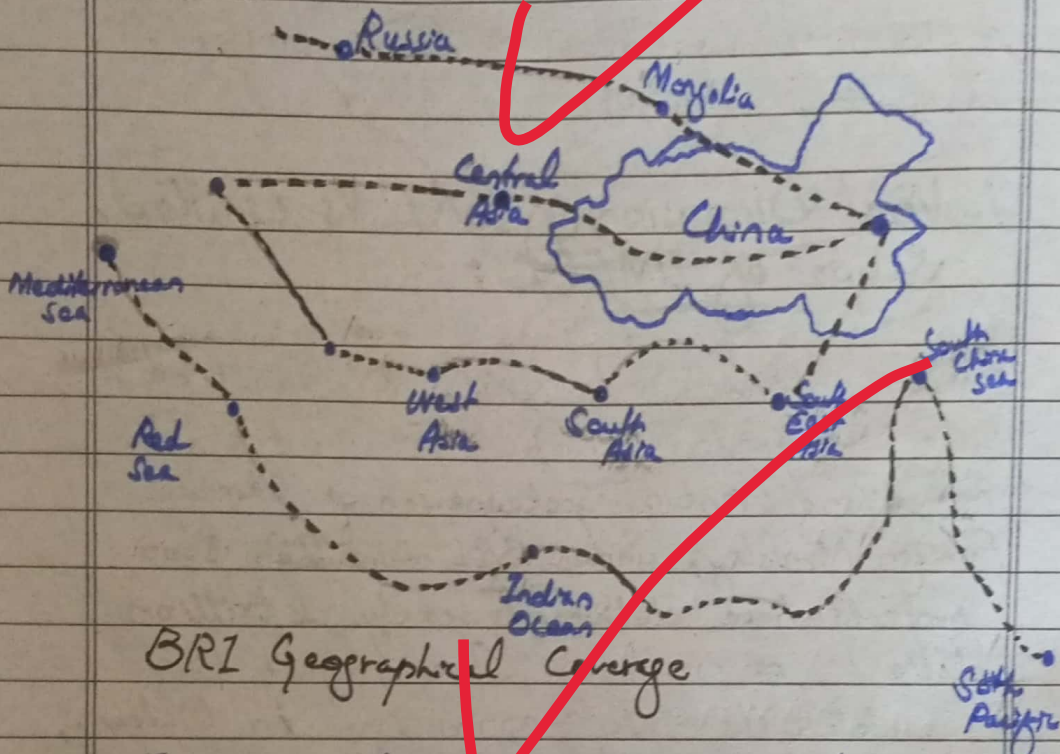 Russia
Mongolia
Central
Asia
China
Mediterranean
Sea
South
China
Sea
West
Asia
South
Asia
South
East
Asia
Red
Sea
Indian
Ocean
BRI Geographical Coverage
Soth
Pacific